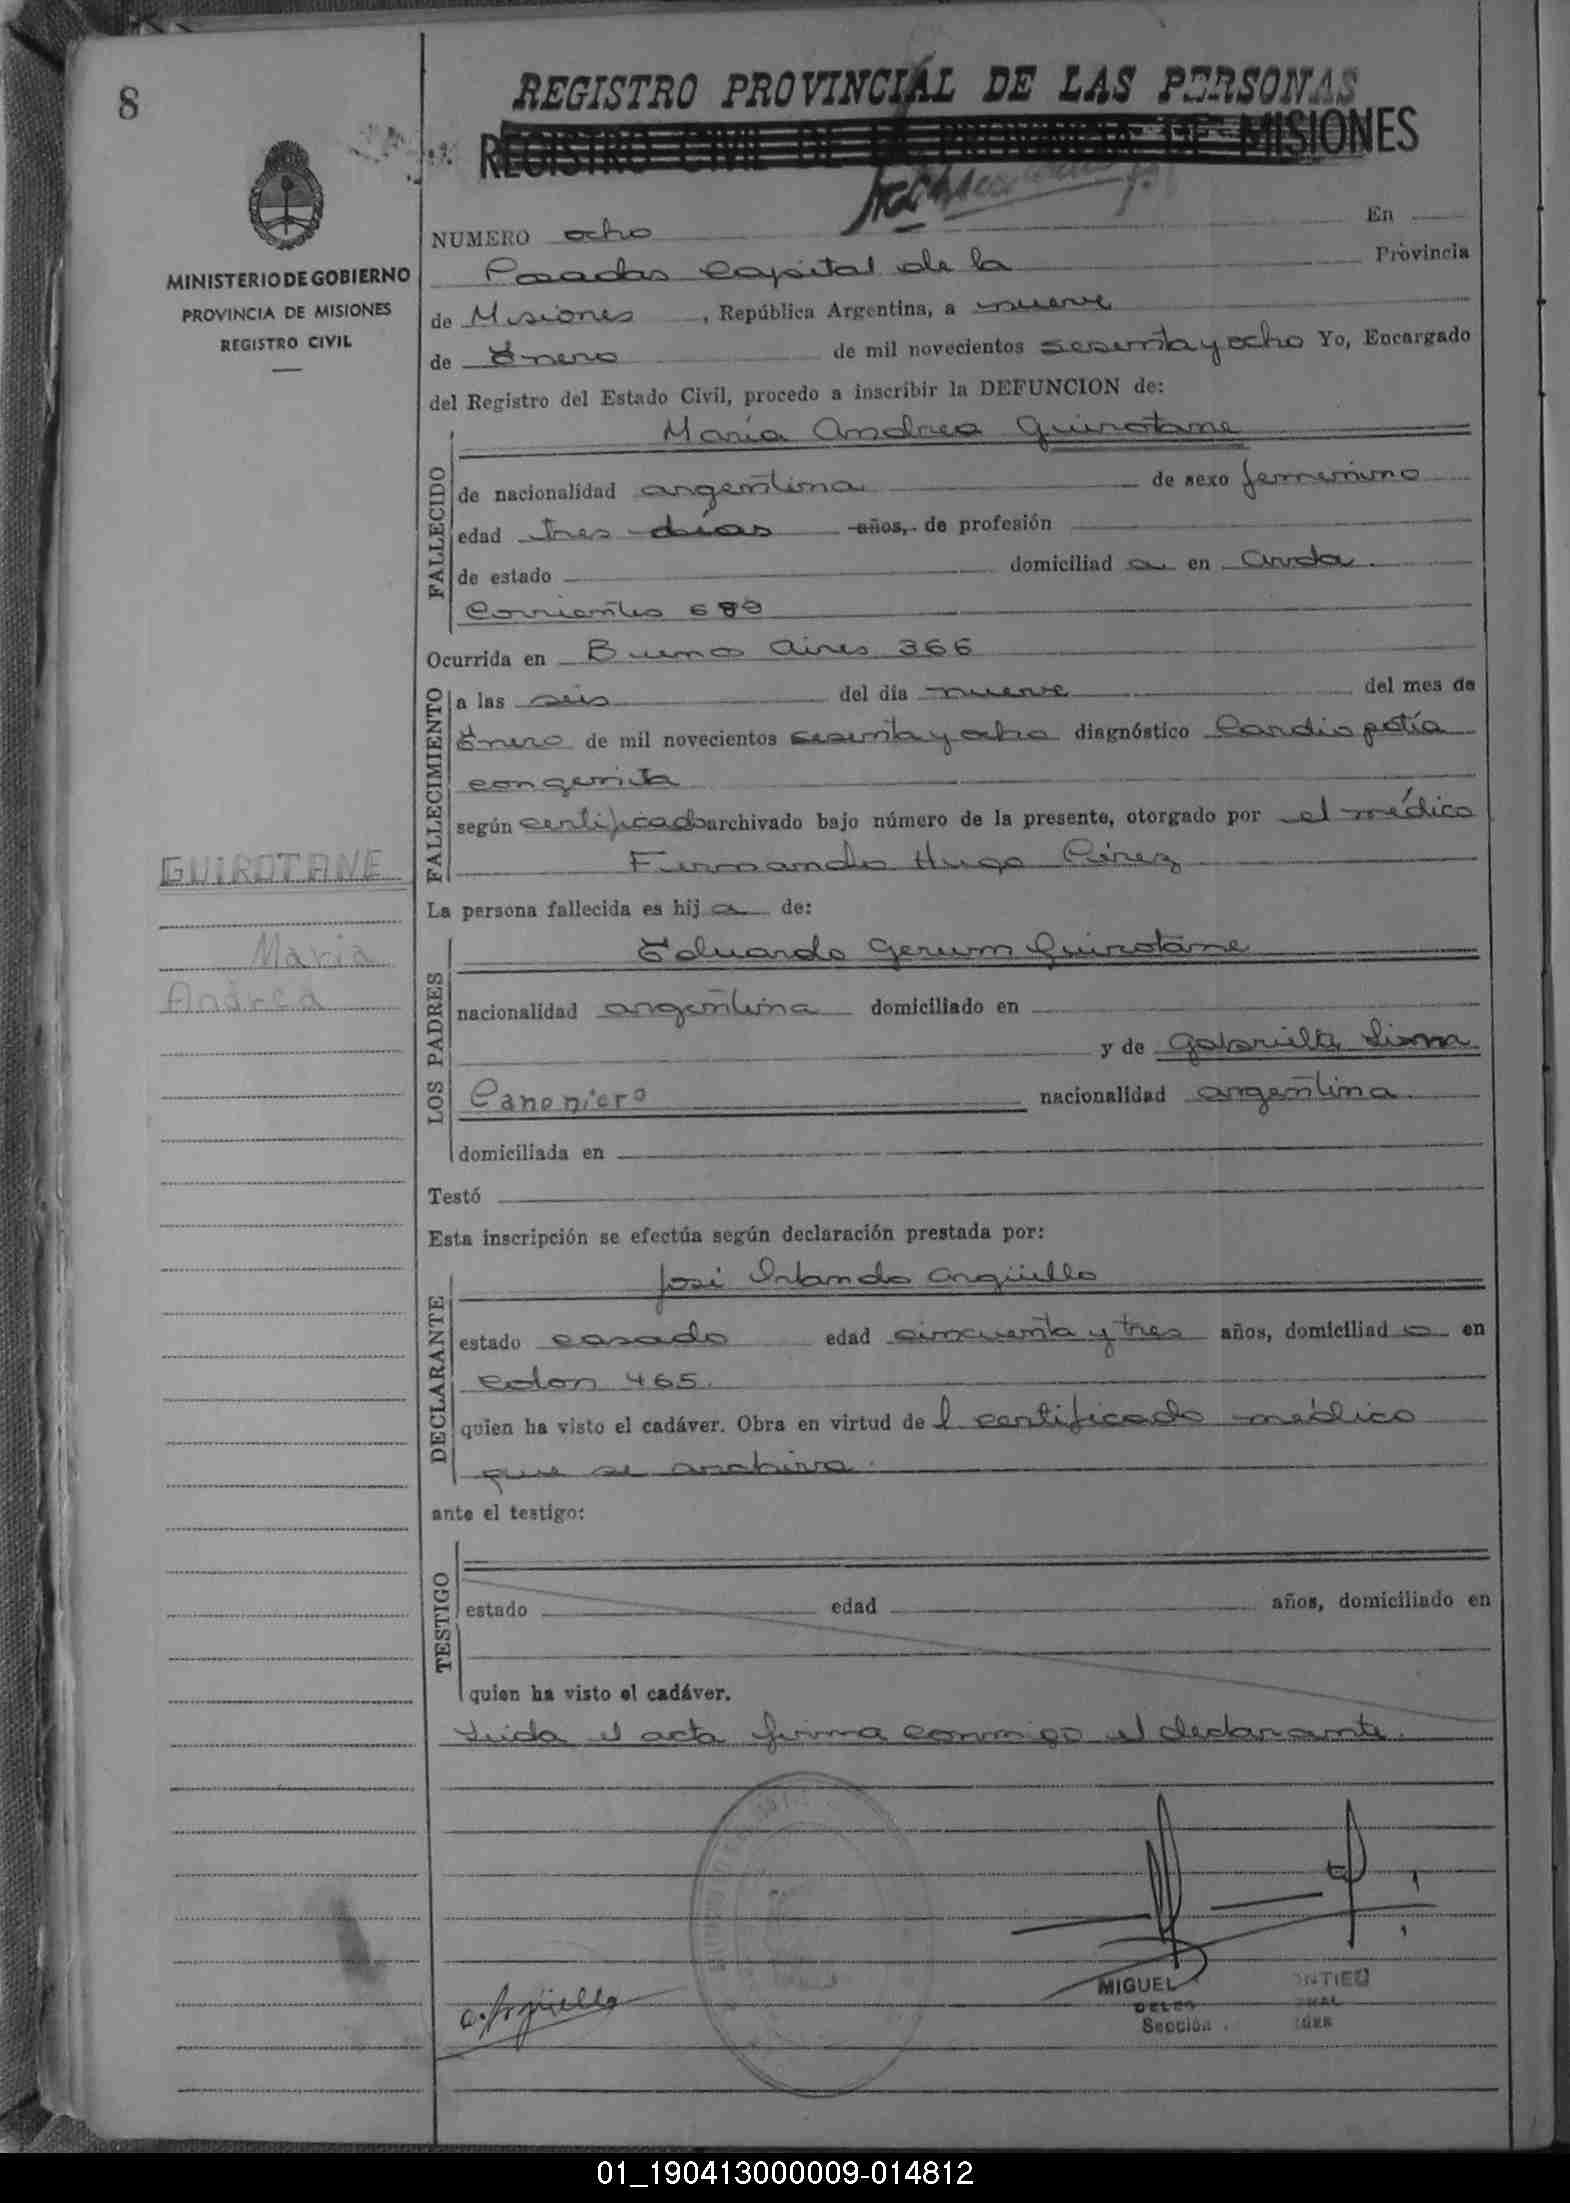 8
REGISTRO PROVINCIAL DE LAS PERSONAS
REGISTRO CIVIL DE LA PROVINCIA DE MISIONES
MINISTERIO DE GOBIERNO
PROVINCIA DE MISIONES
REGISTRO CIVIL
NUMERO ocho En
Posadas Capital de la Provincia
de Misiones, República Argentina, a nueve
de Enero de mil novecientos sesenta y ocho Yo, Encargado
del Registro del Estado Civil, procedo a inscribir la DEFUNCION de:
María Andrea Guirotane
FALLECIDO
de nacionalidad argentina de sexo femenino
edad tres días años, de profesión
de estado domiciliad a en Avda.
Corrientes 689
Ocurrida en Buenos Aires 366
FALLECIMIENTO
a las seis del día nueve del mes de
Enero de mil novecientos sesenta y ocho diagnóstico Cardiopatía
congenita
según certificado archivado bajo número de la presente, otorgado por el médico
Fernando Hugo Pérez
GUIROTANE
Maria
Andrea
La persona fallecida es hij a de:
LOS PADRES
Eduardo Guirotane
nacionalidad argentina domiciliado en
y de Gabriela
Canonicro
nacionalidad argentina.
domiciliada en
Testó
Esta inscripción se efectúa según declaración prestada por:
DECLARANTE
José Orlando Argüello
estado casado edad cincuenta y tres años, domiciliad o en
Colon 465.
quien ha visto el cadáver. Obra en virtud de l certificado médico
que se archiva.
ante el testigo:
TESTIGO
estado edad años, domiciliado en
quien ha visto el cadáver.
Leida el acta firma conmigo el declarante.
O. Argüello
MIGUEL
Sección
01_190413000009-014812